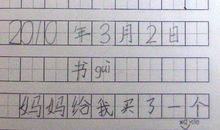 2010年3月2日
书guì
妈妈给我买了一个